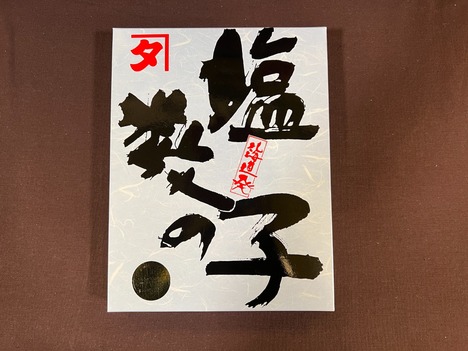 タ
塩
数の
子
北海道発